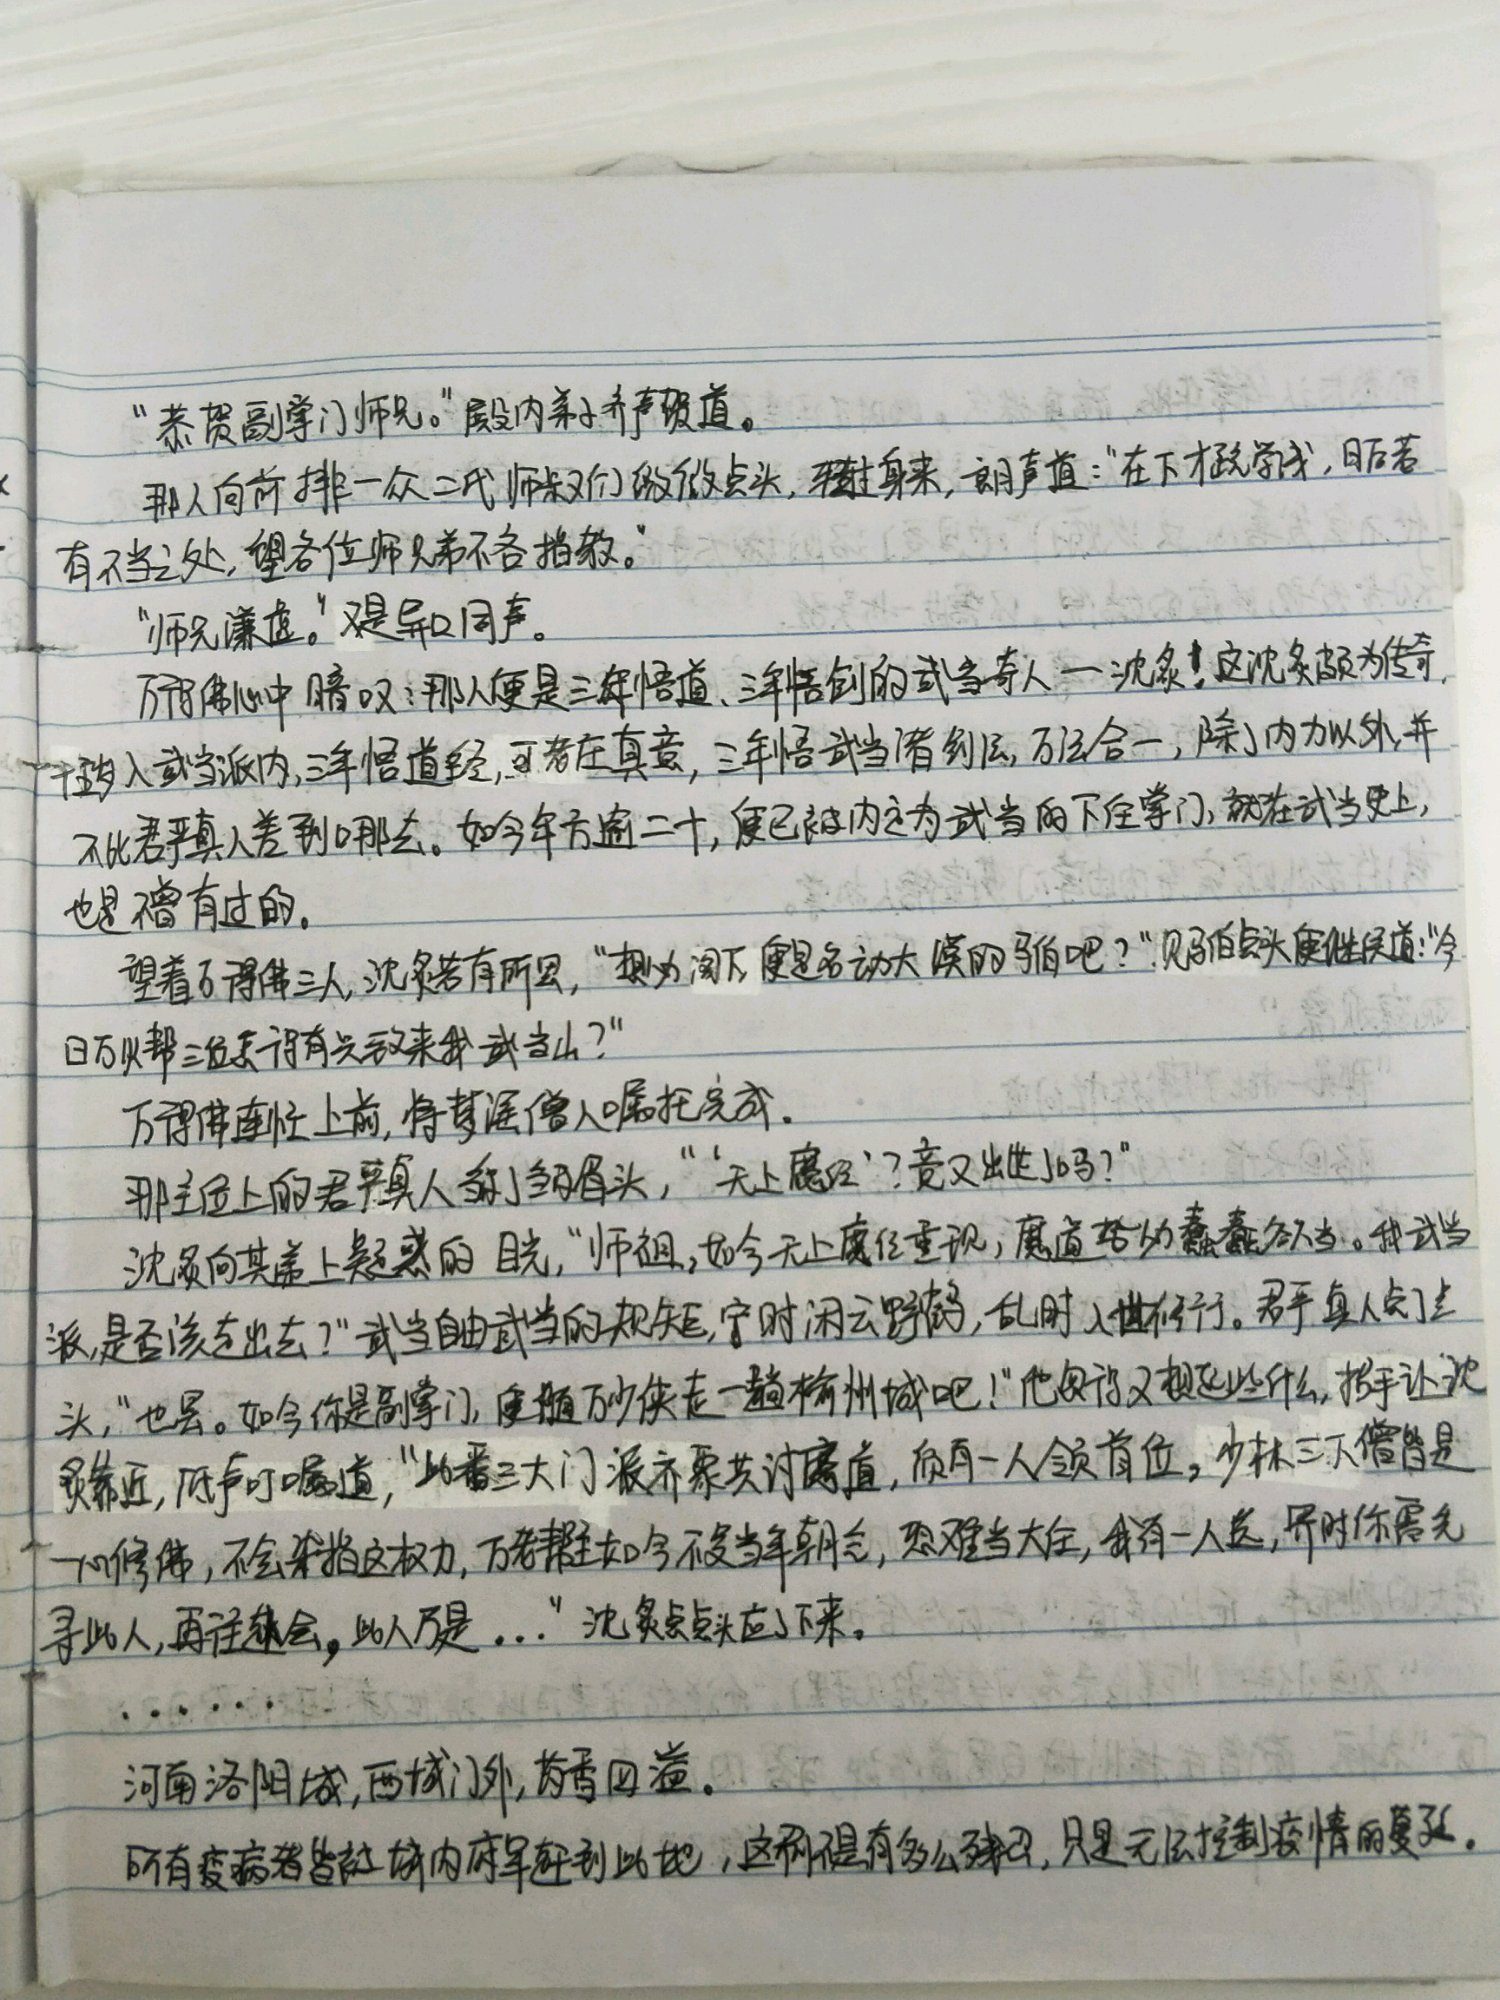 “恭贺副掌门师兄。”殿内弟子齐声贺道。
那人向前排一众二代师叔们微微点头，转过身来，朗声道：“在下才疏学浅，日后若
有不当之处，望各位师兄弟不吝指教。”
“师兄谦虚。”又是异口同声。
万得佛心中暗叹：那人便是三年悟道、三年悟剑的武当奇人——沈炙！这沈炙颇为传奇，
十五岁入武当派内，三年悟道经，可著庄真意，三年悟武当诸剑法，万法合一，除了内力以外，并
不比君乎真人差到哪去。如今年方逾二十，便已被内定为武当的下任掌门，就在武当史上，
也是不曾有过的。
望着万得佛三人，沈炙若有所思，“想必阁下便是名动大漠的马伯吧？”见马伯点头便继续道：“今
日万仇帮三位怎得有兴致来我武当山？”
万得佛连忙上前，将梦遥僧人嘱托完成。
那主位上的君乎真人皱了皱眉头，“‘无上魔经’？竟又出世了吗？”
沈炙向其递上疑惑的目光，“师祖，如今无上魔经重现，魔道势力蠢蠢欲当。我武当
派，是否该走出去？”武当自由武当的规矩，宁时闲云野鹤，乱时入世修行。君乎真人点了点
头，“也是。如今你是副掌门，便随万少侠走一趟榆州城吧！”他再许又想起些什么，招手让沈
炙靠近，低声叮嘱道，“此番三大门派齐聚共讨魔道，须有一人领首位。少林三下僧皆是
一心修佛，不会染指这权力，万老帮主如今不复当年朝气，恐难当大任，我有一人选，界时你需先
寻此人，再往赴会。此人乃是...”沈炙点点头应了下来。
······
河南洛阳城，西城门外，药香四溢。
所有疫病者皆被城内府军赶到此地，这倒不是有多么残忍，只是无法控制疫情的蔓延。